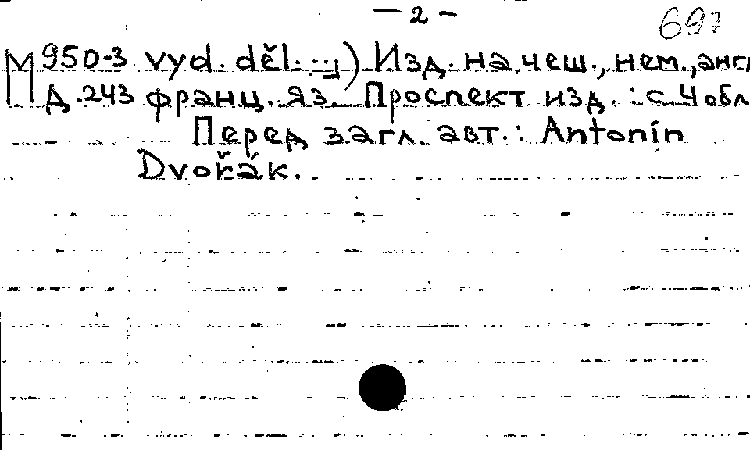 — 2 —
697
М 950-3 vyd. děl. ...) Изд. на чеш., нем., англ
Д. 243 франц. яз. Проспект изд. : с. 4 обл
Перед загл. авт. : Antonín
Dvořák.